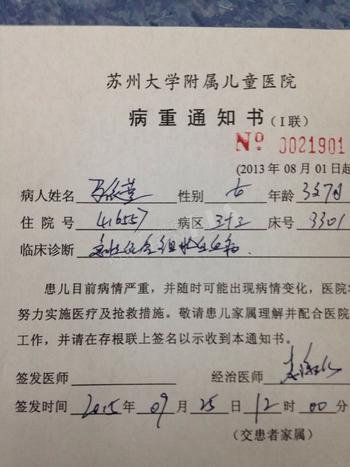 苏州大学附属儿童医院
病重通知书（I联）
Nº 0021901
(2013年08月01日起
病人姓名 性别 女 年龄 3岁7月
住院号 416557 病区 床号 3301
临床诊断
患儿目前病情严重，并随时可能出现病情变化，医院
努力实施医疗及抢救措施。敬请患儿家属理解并配合医院
工作，并请在存根联上签名以示收到本通知书。
签发医师 经治医师
签发时间 2015年 09月 25日 12时 00分
(交患者家属)